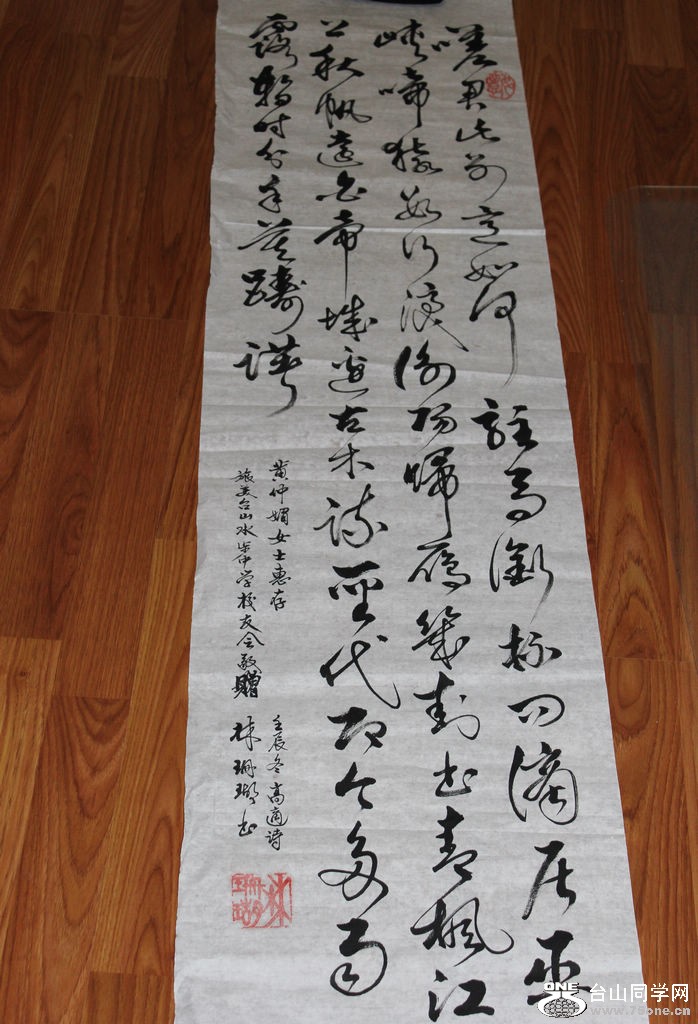 嗟君此别意如何駐馬衔杯问谪居巫
峡啼猿数行淚衡阳歸雁幾封书青枫江
上秋帆遠白帝城边古木疏聖代即今多雨
露暂时分手莫踌躇
黄仲媚女士惠存
旅美台山水步中学校友会敬赠
壬辰冬高適诗
林珊瑚书
林珊瑚
ONE
台山同学网
www.79one.cn